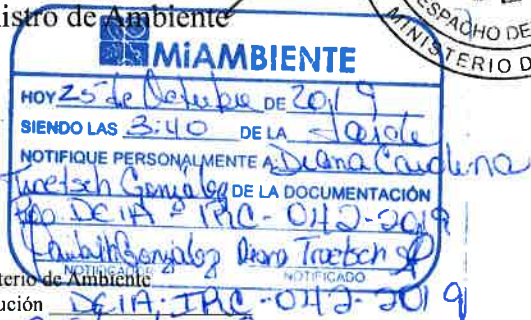 istro de Ambiente
SPACHO DE
MINISTERIO D
MiAMBIENTE
HOY 25 de Octubre DE 2019
SIENDO LAS 3:40 DE LA Tarde
NOTIFIQUE PERSONALMENTE A: Diana Carolina
González DE LA DOCUMENTACIÓN
DEIA - IPRC - 042-2019
González Diana Troetsch
NOTIFICADOR NOTIFICADO
terio de Ambiente
ución DEIA-IPRC-042-2019